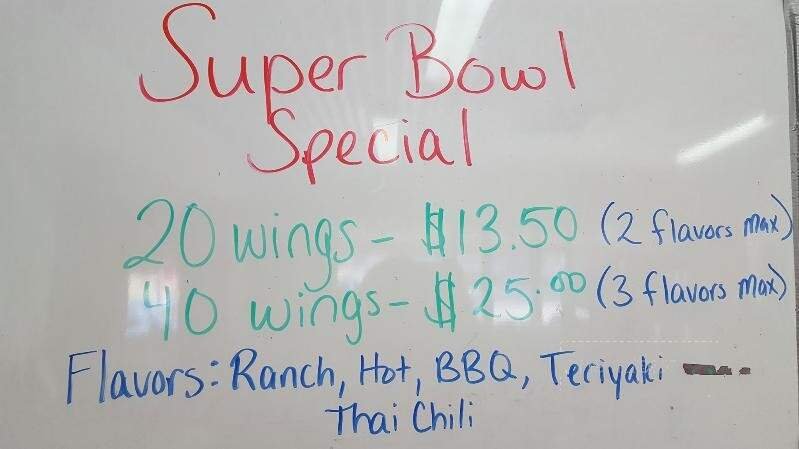 Super Bowl
Special
20 wings - $13.50 (2 flavors max)
40 wings - $25.00 (3 flavors max)
Flavors: Ranch, Hot, BBQ, Teriyaki
Thai Chili